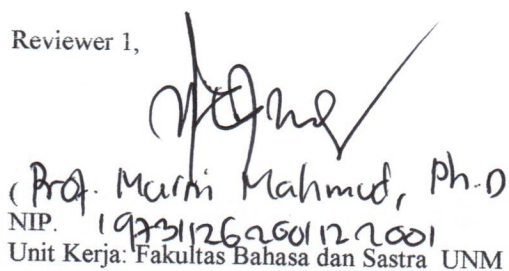 Reviewer 1,
(Prof. Murni Mahmud, Ph.D
NIP. 197311262001122001
Unit Kerja: Fakultas Bahasa dan Sastra UNM